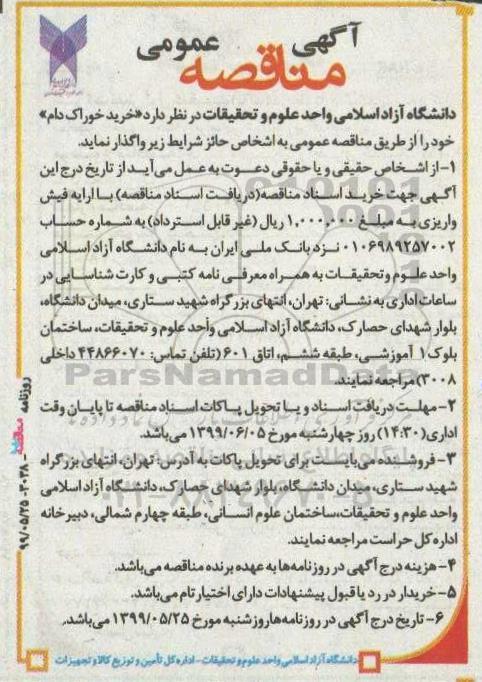 آگهی
مناقصه
عمومی
دانشگاه آزاد اسلامی واحد علوم و تحقیقات در نظر دارد «خرید خوراک دام»
خود را از طریق مناقصه عمومی به اشخاص حائز شرایط زیر واگذار نماید.
۱- از اشخاص حقیقی و یا حقوقی دعوت به عمل می‌آید از تاریخ درج این
آگهی جهت خرید اسناد مناقصه (دریافت اسناد مناقصه) با ارایه فیش
واریزی به مبلغ ۱,۰۰۰,۰۰۰ ریال (غیر قابل استرداد) به شماره حساب
۰۱۰۶۹۸۹۲۵۷۰۰۲ نزد بانک ملی ایران به نام دانشگاه آزاد اسلامی
واحد علوم و تحقیقات به همراه معرفی نامه کتبی و کارت شناسایی در
ساعات اداری به نشانی: تهران، انتهای بزرگراه شهید ستاری، میدان دانشگاه،
بلوار شهدای حصارک، دانشگاه آزاد اسلامی واحد علوم و تحقیقات، ساختمان
بلوک ۱ آموزشی، طبقه ششم، اتاق ۶۰۱ (تلفن تماس: ۴۴۸۶۶۰۷۰ داخلی
۳۰۰۸) مراجعه نمایند.
ParsNamadData
۲- مهلت دریافت اسناد و یا تحویل پاکات اسناد مناقصه تا پایان وقت
اداری (۱۴:۳۰) روز چهارشنبه مورخ ۱۳۹۹/۰۶/۰۵ می‌باشد.
۳- فروشنده می‌بایست برای تحویل پاکات به آدرس: تهران، انتهای بزرگراه
شهید ستاری، میدان دانشگاه، بلوار شهدای حصارک، دانشگاه آزاد اسلامی
واحد علوم و تحقیقات، ساختمان علوم انسانی، طبقه چهارم شمالی، دبیرخانه
اداره کل حراست مراجعه نمایند.
۴- هزینه درج آگهی در روزنامه‌ها به عهده برنده مناقصه می‌باشد.
۵- خریدار در رد یا قبول پیشنهادات دارای اختیار تام می‌باشد.
۶- تاریخ درج آگهی در روزنامه‌ها روز شنبه مورخ ۱۳۹۹/۰۵/۲۵ می‌باشد.
دانشگاه آزاد اسلامی واحد علوم و تحقیقات - اداره کل تأمین و توزیع کالا و تجهیزات
روزنامه مناقصه - ۳۰۲۸ - ۹۹/۰۵/۲۵